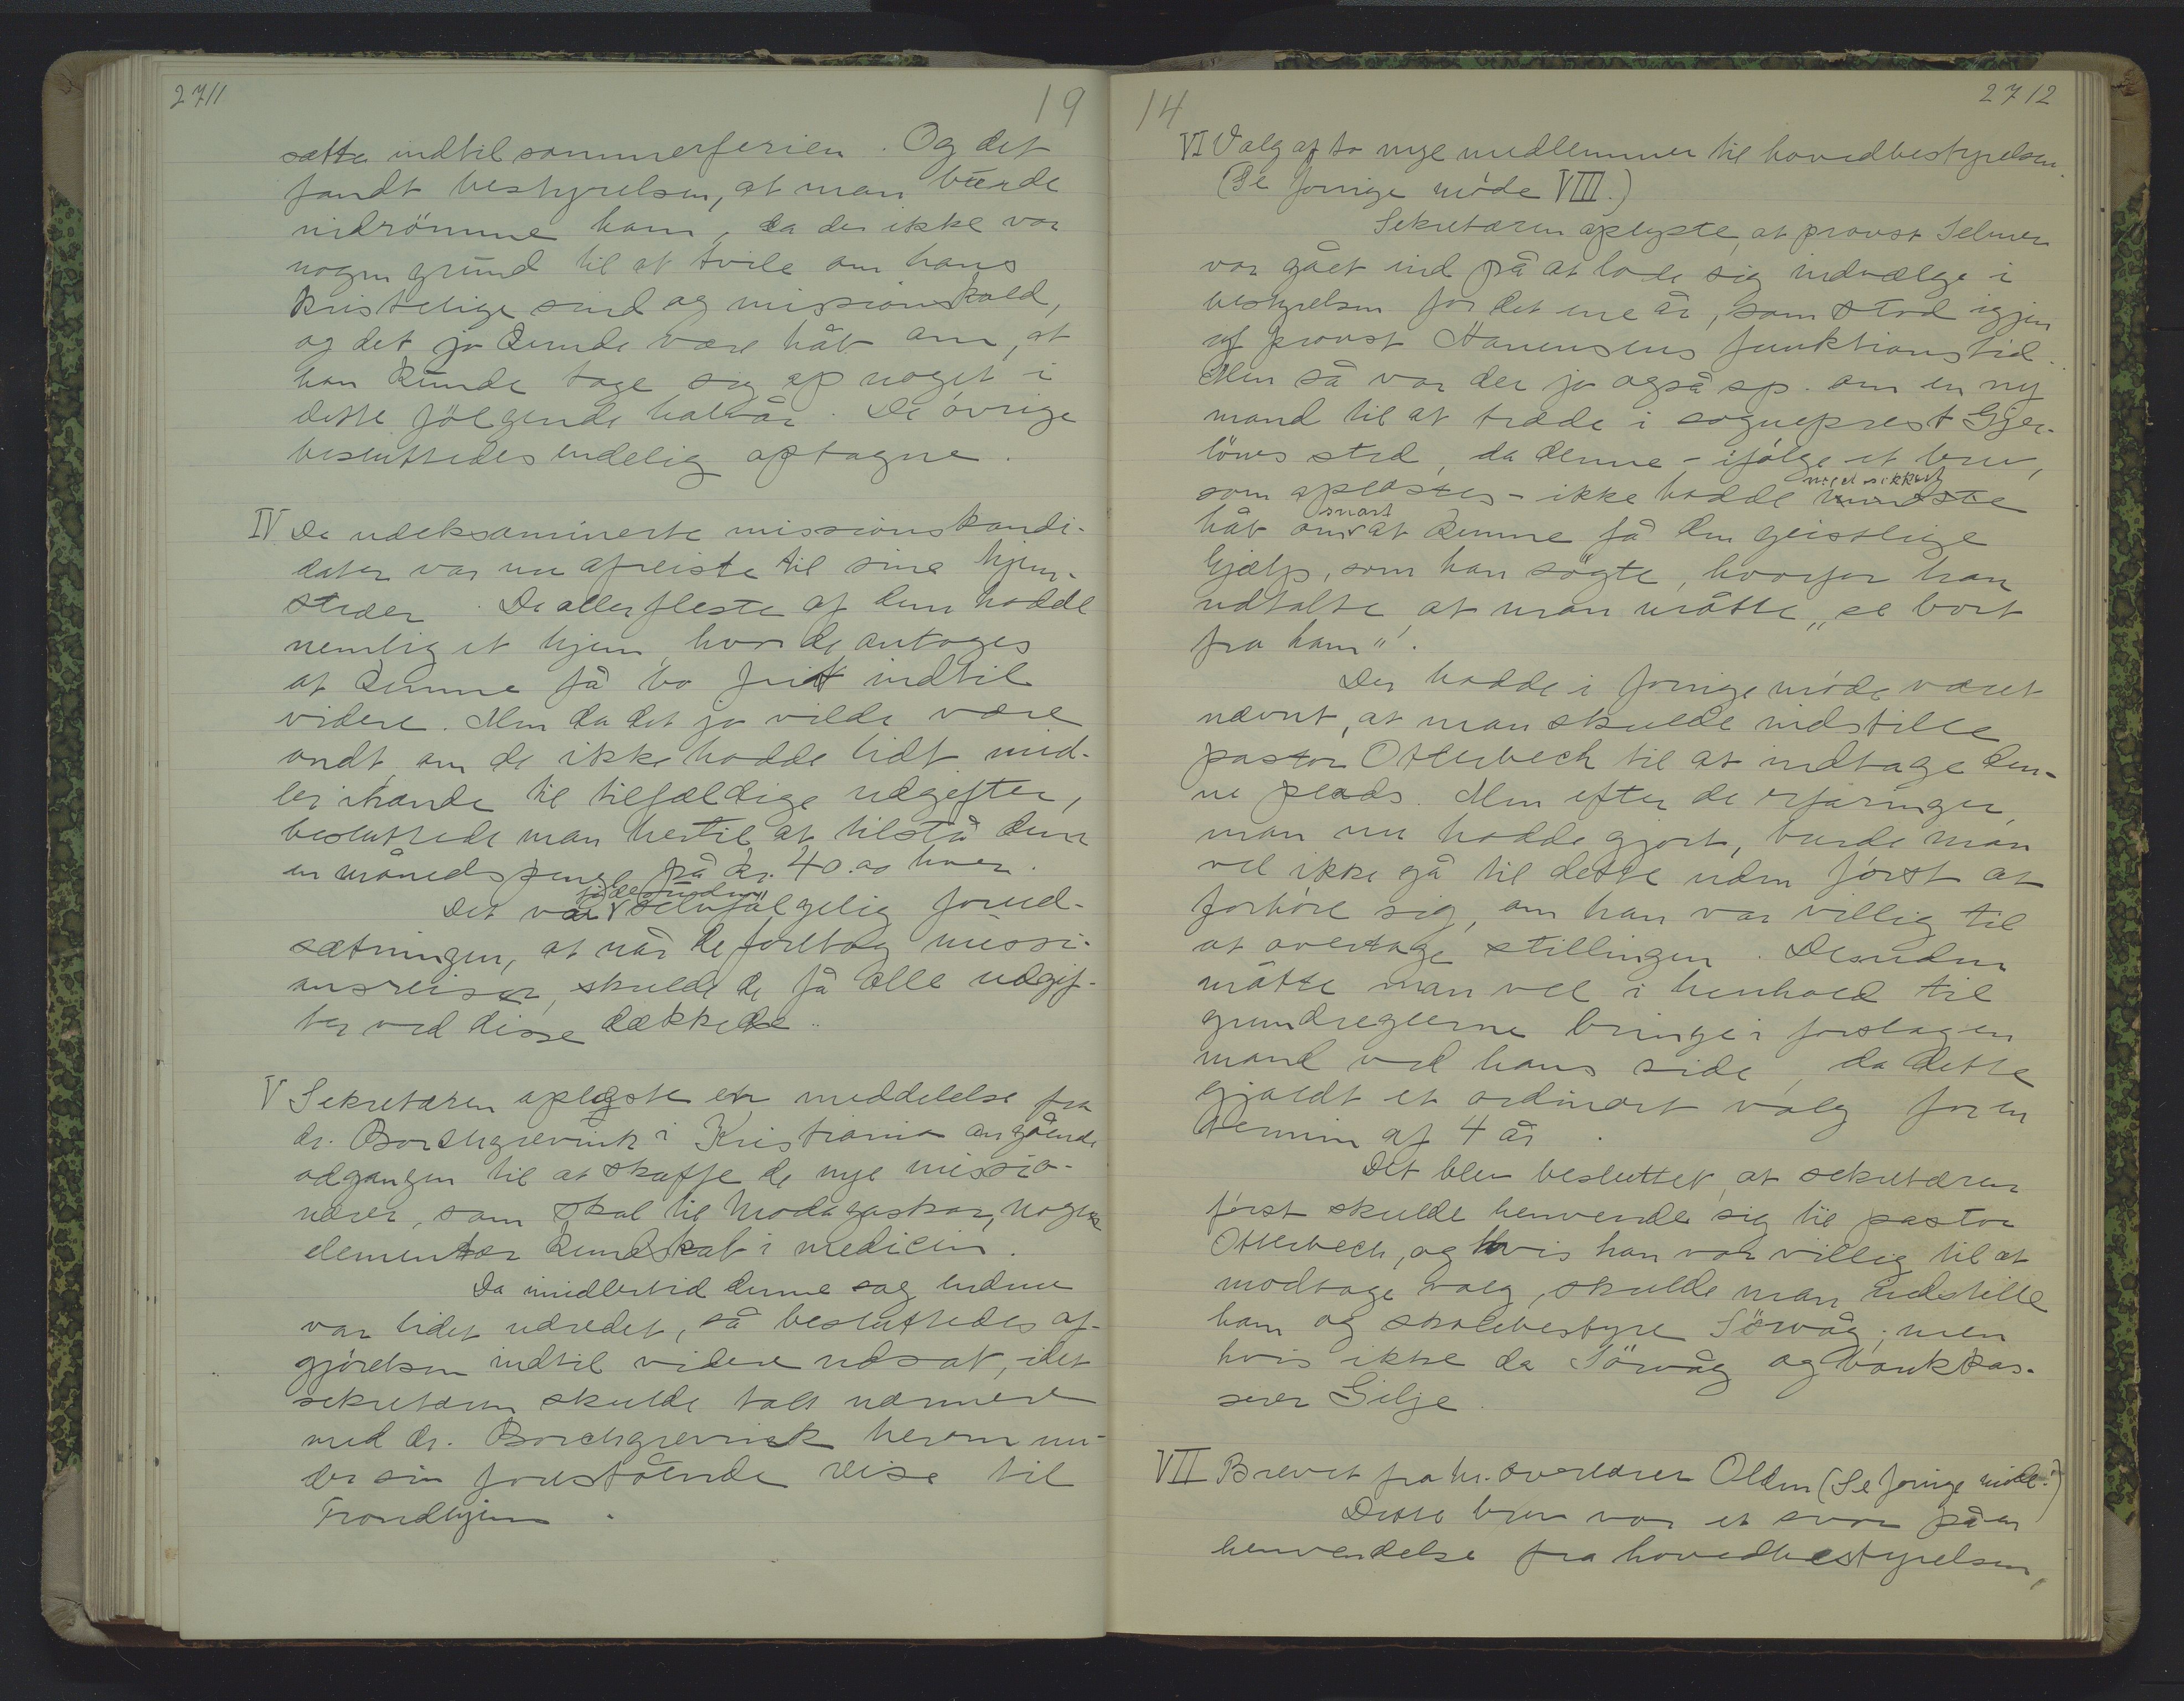 2711
19
sætte indtil sommerferien. Og det
fandt bestyrelsen, at man burde
indrömme ham, da der ikke var
nogen grund til at tvile om hans
kristelige sind og missionskald,
og det jo kunde være håb om, at
han kunde tage sig op noget i
dette fölgende halvår. De övrige
besluttedes endelig optagne.
IV De udeksaminerte missionskandi-
dater var nu afreiste til sine hjem-
steder. De aller fleste af dem hadde
nemlig et hjem, hvor de antoges
at kunne få bo frit indtil
videre. Men da det jo vilde være
ondt, om de ikke hadde lidt mid-
ler ihænde til tilfældige udgifter,
besluttede man hertil at tilstå dem
en månedspenge på kr. 40.00 hver.
Det var selvfölgelig forud-
sætningen, at når de foretog missi-
onsreiser, skulde de få alle udgif-
ter ved disse dækkede.
V Sekretæren oplæste en meddelelse fra
dr. Borchgrevink i Kristiania angående
adgangen til at skaffe de nye missio-
nærer, som skal til Madagaskar, nogen
elementær kundskab i medicin.
Da imidlertid denne sag endnu
var lidet udredet, så besluttedes af-
gjörelsen indtil videre udsat, idet
sekretæren skulde tale nærmere
med dr. Borchgrevink herom un-
der sin forestående reise til
Trondhjem.
14
2712
VI Valg af to nye medlemmer til hovedbestyrelsen.
(Se forrige möde VIII.)
Sekretæren oplyste, at provst Selmer
var gået ind på at lade sig indvælge i
bestyrelsen for det ene år, som stod igjen
af provst Hanensens funktionstid.
Men så var der jo også sp. om en ny
mand til at træde i sogneprest Gjer-
löws sted, da denne - ifölge et brev,
som oplæstes - ikke hadde noget sikkert
håb om snart at kunne få den geistlige
hjælp, som han sögte, hvorfor han
udtalte, at man måtte "se bort
fra ham".
Der hadde i forrige möde været
nævnt, at man skulde indstille
pastor Otterbech til at indtage den-
ne plads. Men efter de erfaringer,
man nu hadde gjort, burde man
vel ikke gå til dette uden först at
forhöre sig, om han var villig til
at overtage stillingen. Desuden
måtte man vel i henhold til
grundreglerne bringe i forslag en
mand ved hans side, da dette
gjaldt et ordinært valg for en
termin af 4 år.
Det blev besluttet, at sekretæren
först skulde henvende sig til pastor
Otterbech, og hvis han var villig til at
modtage valg, skulde man indstille
ham og skolebestyrer Sörvåg; men
hvis ikke da Sörvåg og bankkas-
serer Gilje.
VII Brevet fra hr. overlærer Olden (Se forrige möde.)
Dette brev var et svar på en
henvendelse fra hovedbestyrelsen,